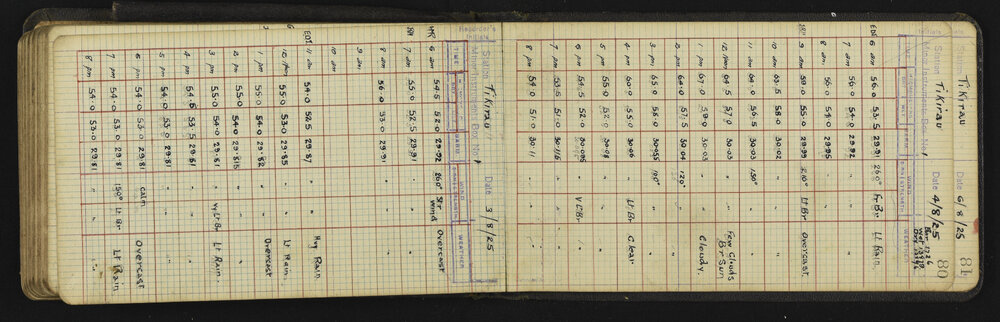 Station Tikirau Date 3/8/25
Minor Instruments Box No. 1
Recorder's Initials TIME DRY WET BARO WIND DIR & STRENGTH WEATHER
6 am 54.5 52.0 29.92 260° Str Wind Overcast
7 am 55.0 52.5 29.91 "
8 am 56.0 53.0 29.91 "
9 am
10 am
EDF 11 am 54.0 52.5 29.87 " " Hvy Rain
12 Noon 55.0 53.0 29.85 " " Lt Rain
1 pm 55.0 54.0 29.82 " " Overcast
2 pm 55.0 54.0 29.815 " " "
3 pm 55.0 54.0 29.81 " Vy Lt Br Lt Rain
4 pm 54.5 53.5 29.81 " " "
5 pm 54.0 53.0 29.81 " " "
6 pm 54.0 53.0 29.81 calm Overcast
7 pm 54.0 53.0 29.81 150° Lt Br Lt Rain
8 pm 54.0 53.0 29.81 " " "
81
Tikirau Date 6/8/25
80
Station Tikirau Date 4/8/25
Minor Instruments Box No. 1
Recorder's Initials TIME DRY WET BARO WIND DIR & STRENGTH WEATHER
EDF 6 am 56.0 53.5 29.91 260° Fy Br Lt Rain
7 am 56.0 54.0 29.92 " " "
8 am 56.0 54.0 29.95 " " "
9 am 59.0 55.0 29.99 210° Lt Br Overcast
10 am 63.5 58.0 30.02 " "
11 am 56.5 30.03 150° "
12 Noon 64.5 57.0 30.03 " " Few Clouds Br Sun
1 pm 67.0 59.0 30.03 " " Cloudy
2 pm 64.0 57.5 30.04 120° "
3 pm 65.0 58.0 30.055 100° "
4 pm 60.0 55.0 30.06 " Lt Br Clear
5 pm 55.0 52.0 30.08 " " "
6 pm 54.5 52.0 30.095 " V Lt Br "
7 pm 53.5 51.0 30.115 " " "
8 pm 54.0 51.0 30.11 " " "